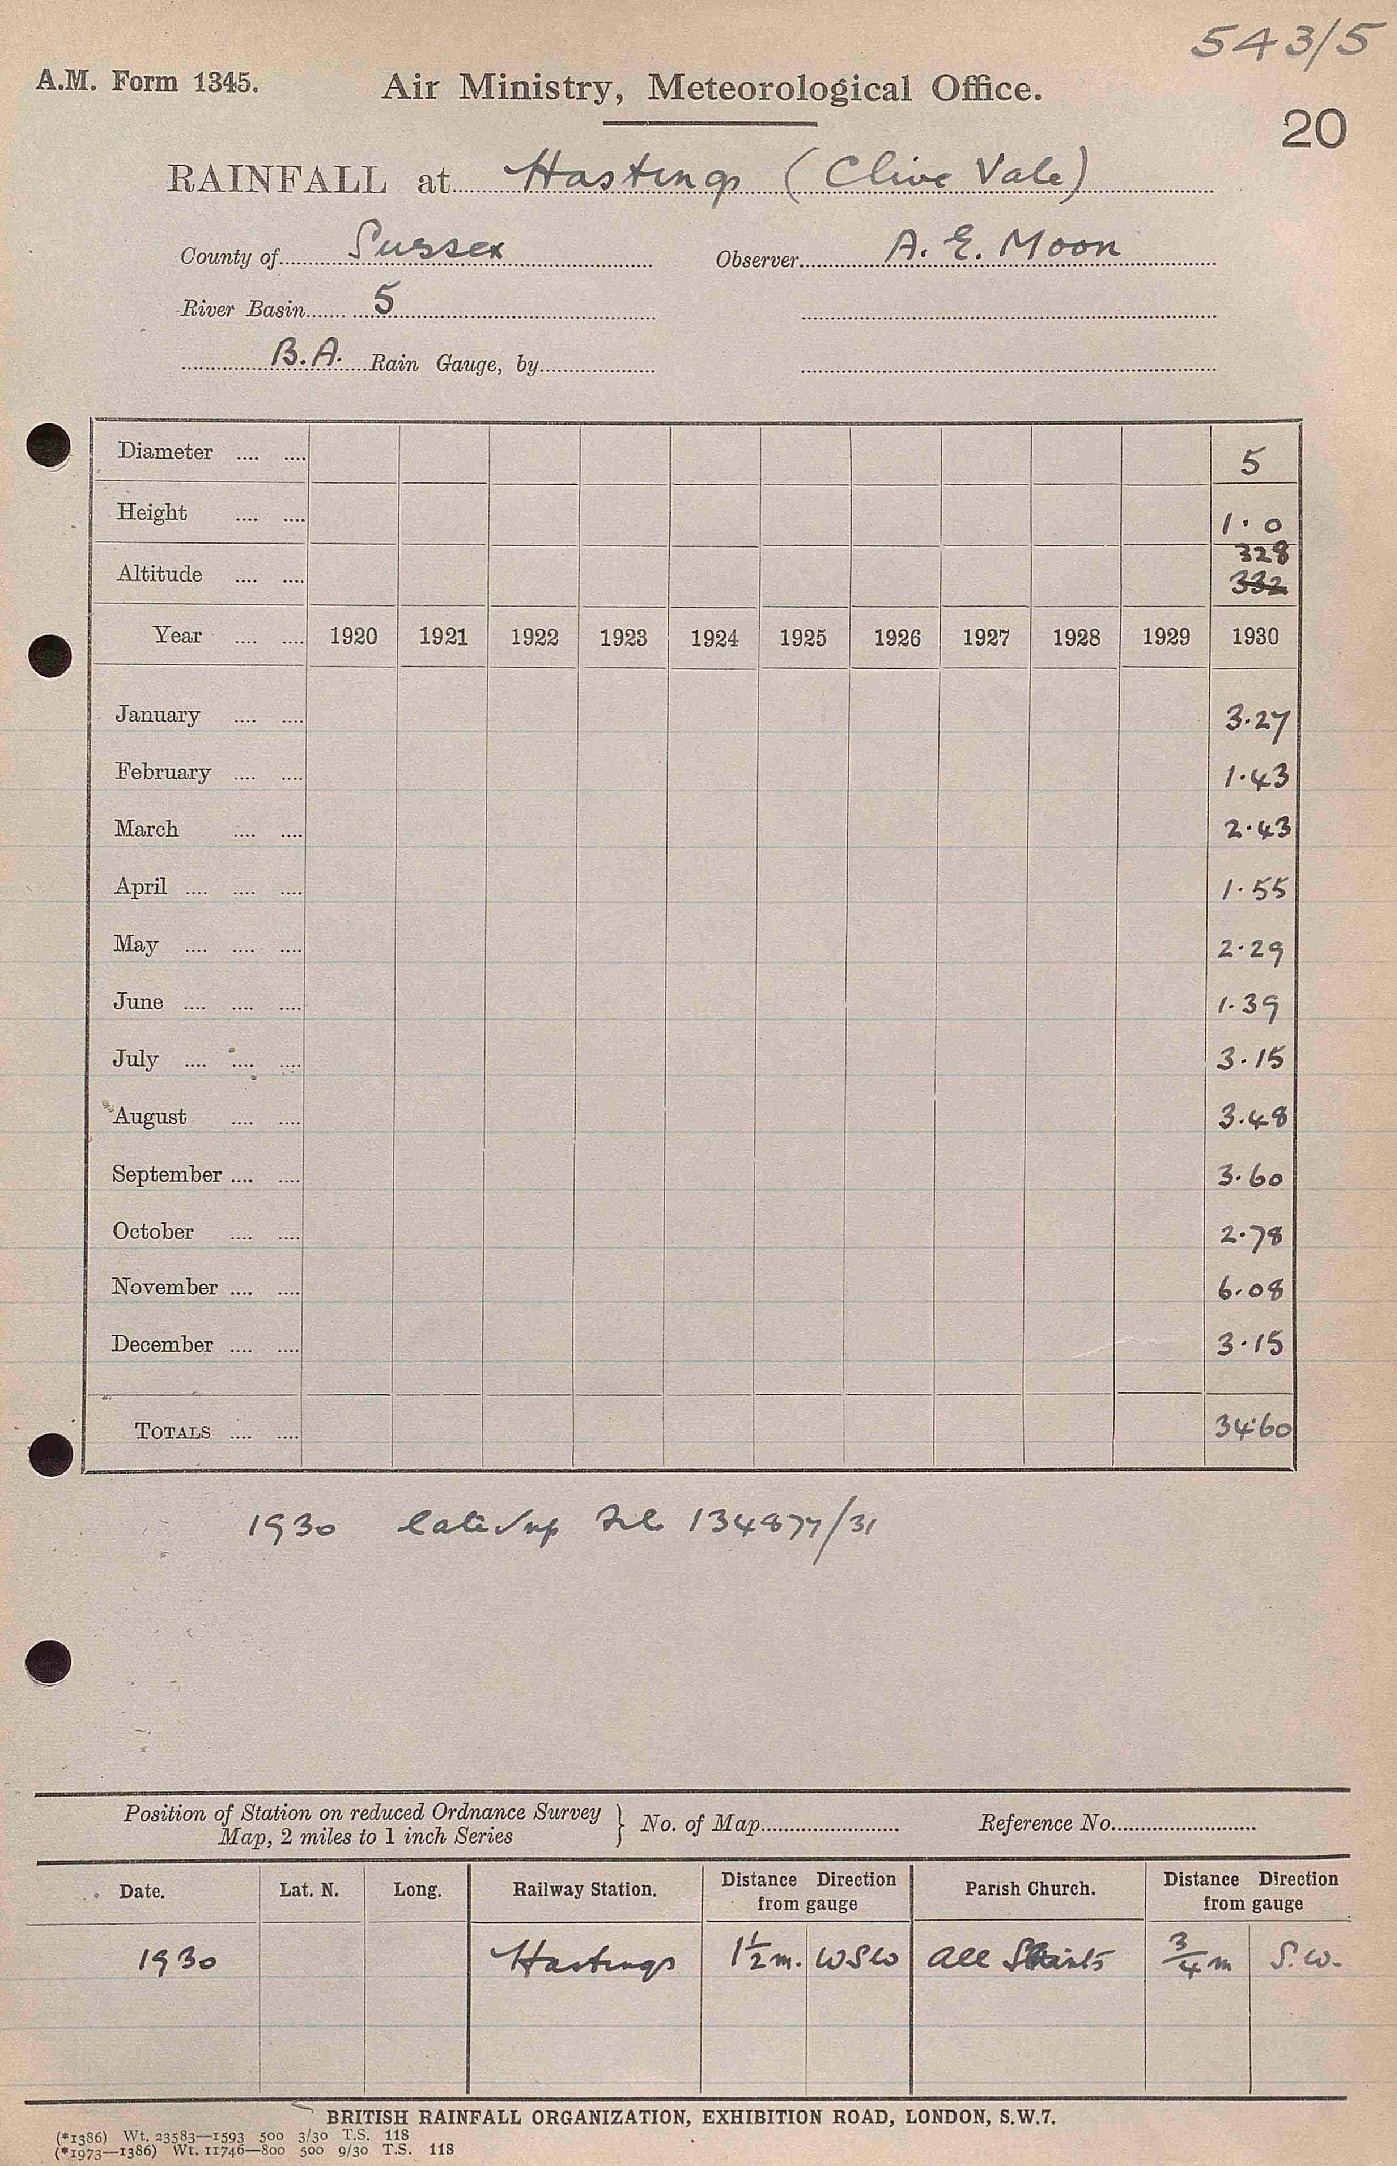 543/5
A.M. Form 1345.
Air Ministry, Meteorological Office.
20
RAINFALL at Hastings (Clive Vale)
County of Sussex Observer A. E. Moon
River Basin 5
B.A. Rain Gauge, by
Diameter 5
Height 1.0
328
Altitude 332
Year 1920 1921 1922 1923 1924 1925 1926 1927 1928 1929 1930
January 3.27
February 1.43
March 2.43
April 1.55
May 2.29
June 1.39
July 3.15
August 3.48
September 3.60
October 2.78
November 6.08
December 3.15
TOTALS 34.60
1930 134877/31
Position of Station on reduced Ordnance Survey
Map, 2 miles to 1 inch Series } No. of Map Reference No.
Date. Lat. N. Long. Railway Station. Distance Direction from gauge Parish Church. Distance Direction from gauge
1930 Hastings 1½ m. WSW All Saints ¾ m S.W.
BRITISH RAINFALL ORGANIZATION, EXHIBITION ROAD, LONDON, S.W.7.
(*1386) Wt. 23583—1593 500 3/30 T.S. 118
(*1973—1386) Wt. 11746—800 500 9/30 T.S. 118